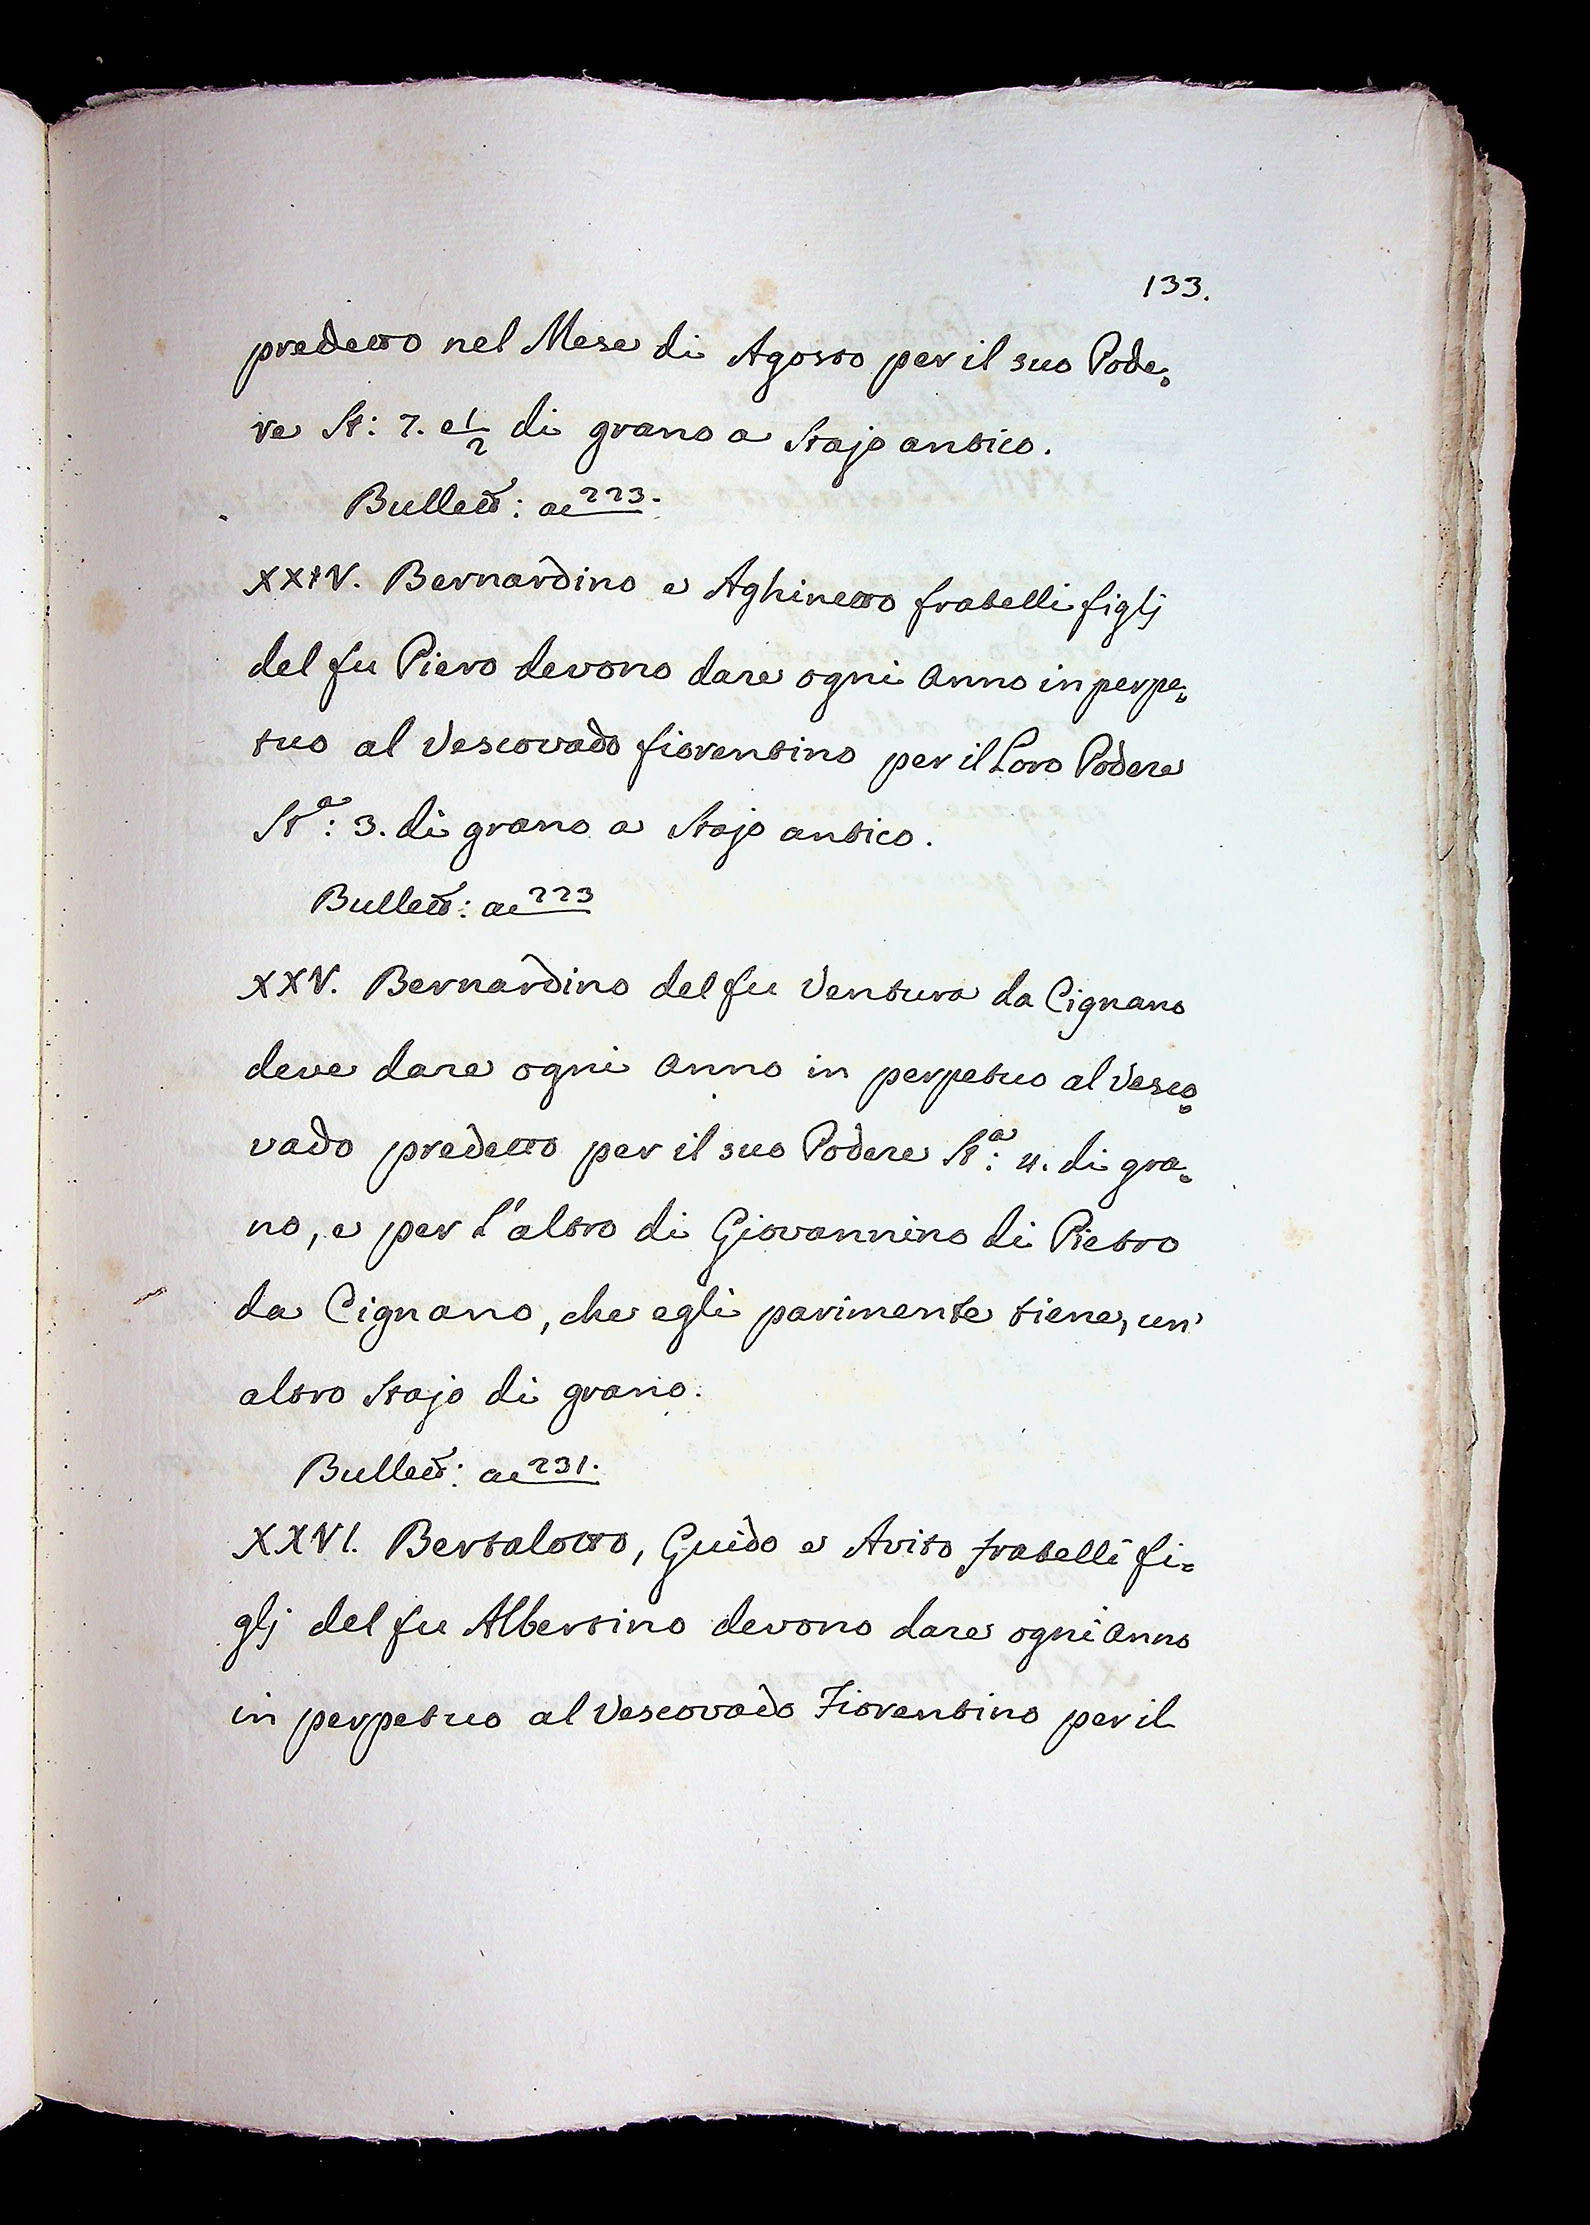 133.
predetto nel Mese di Agosto per il suo Pode=
re St: 7. e 1/2 di grano a Stajo antico.
Bullett: ac 223.
XXIV. Bernardino e Aghinetto fratelli figlj
del fu Piero devono dare ogni Anno in perpe=
tuo al Vescovado fiorentino per il Loro Podere
Stª: 3. di grano a Stajo antico.
Bullett: ac 223
XXV. Bernardino del fu Ventura da Cignano
deve dare ogni Anno in perpetuo al Vesco=
vado predetto per il suo Podere Stª: 4. di gra=
no, e per l'altro di Giovannino di Pietro
da Cignano, che egli parimente tiene, un'
altro Stajo di grano.
Bullett: ac 231.
XXVI. Bertalotto, Guido e Avito fratelli fi=
glj del fu Albertino devono dare ogni Anno
in perpetuo al Vescovado Fiorentino per il